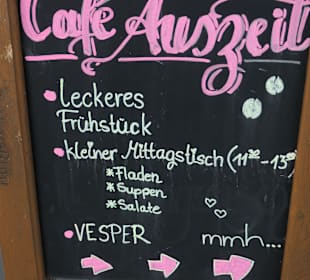 Café Auszeit
• Leckeres
Frühstück
• Kleiner Mittagstisch (11³⁰-13³⁰
* Fladen
* Suppen
* Salate
• VESPER mmh...